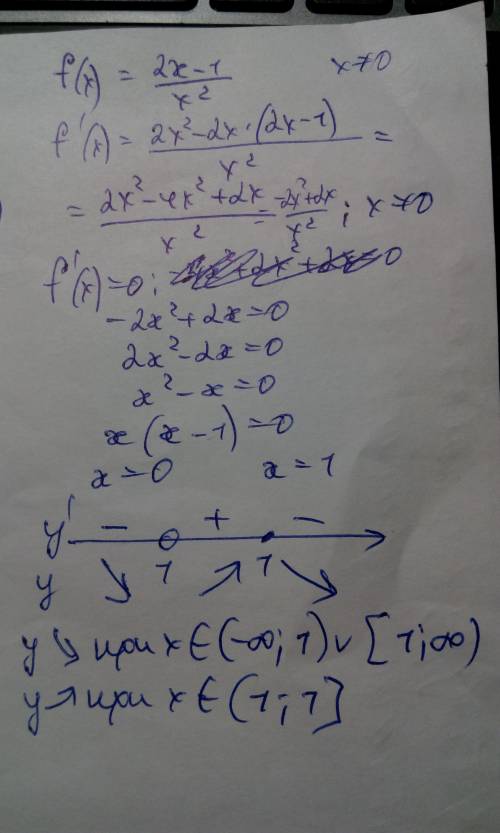 f(x) = (2x-1)/x² x≠0
f'(x) = (2x²-2x·(2x-1))/x² =
= (2x²-4x²+2x)/x² = (-2x²+2x)/x² ; x≠0
f'(x)=0;
-2x²+2x=0
2x²-2x=0
x²-x=0
x(x-1)=0
x=0 x=1
y' - + -
y ↘ 1 ↗ 1 ↘
y ↘ при x∈(-∞;1)∨[1;∞)
y ↗ при x∈(1;1]